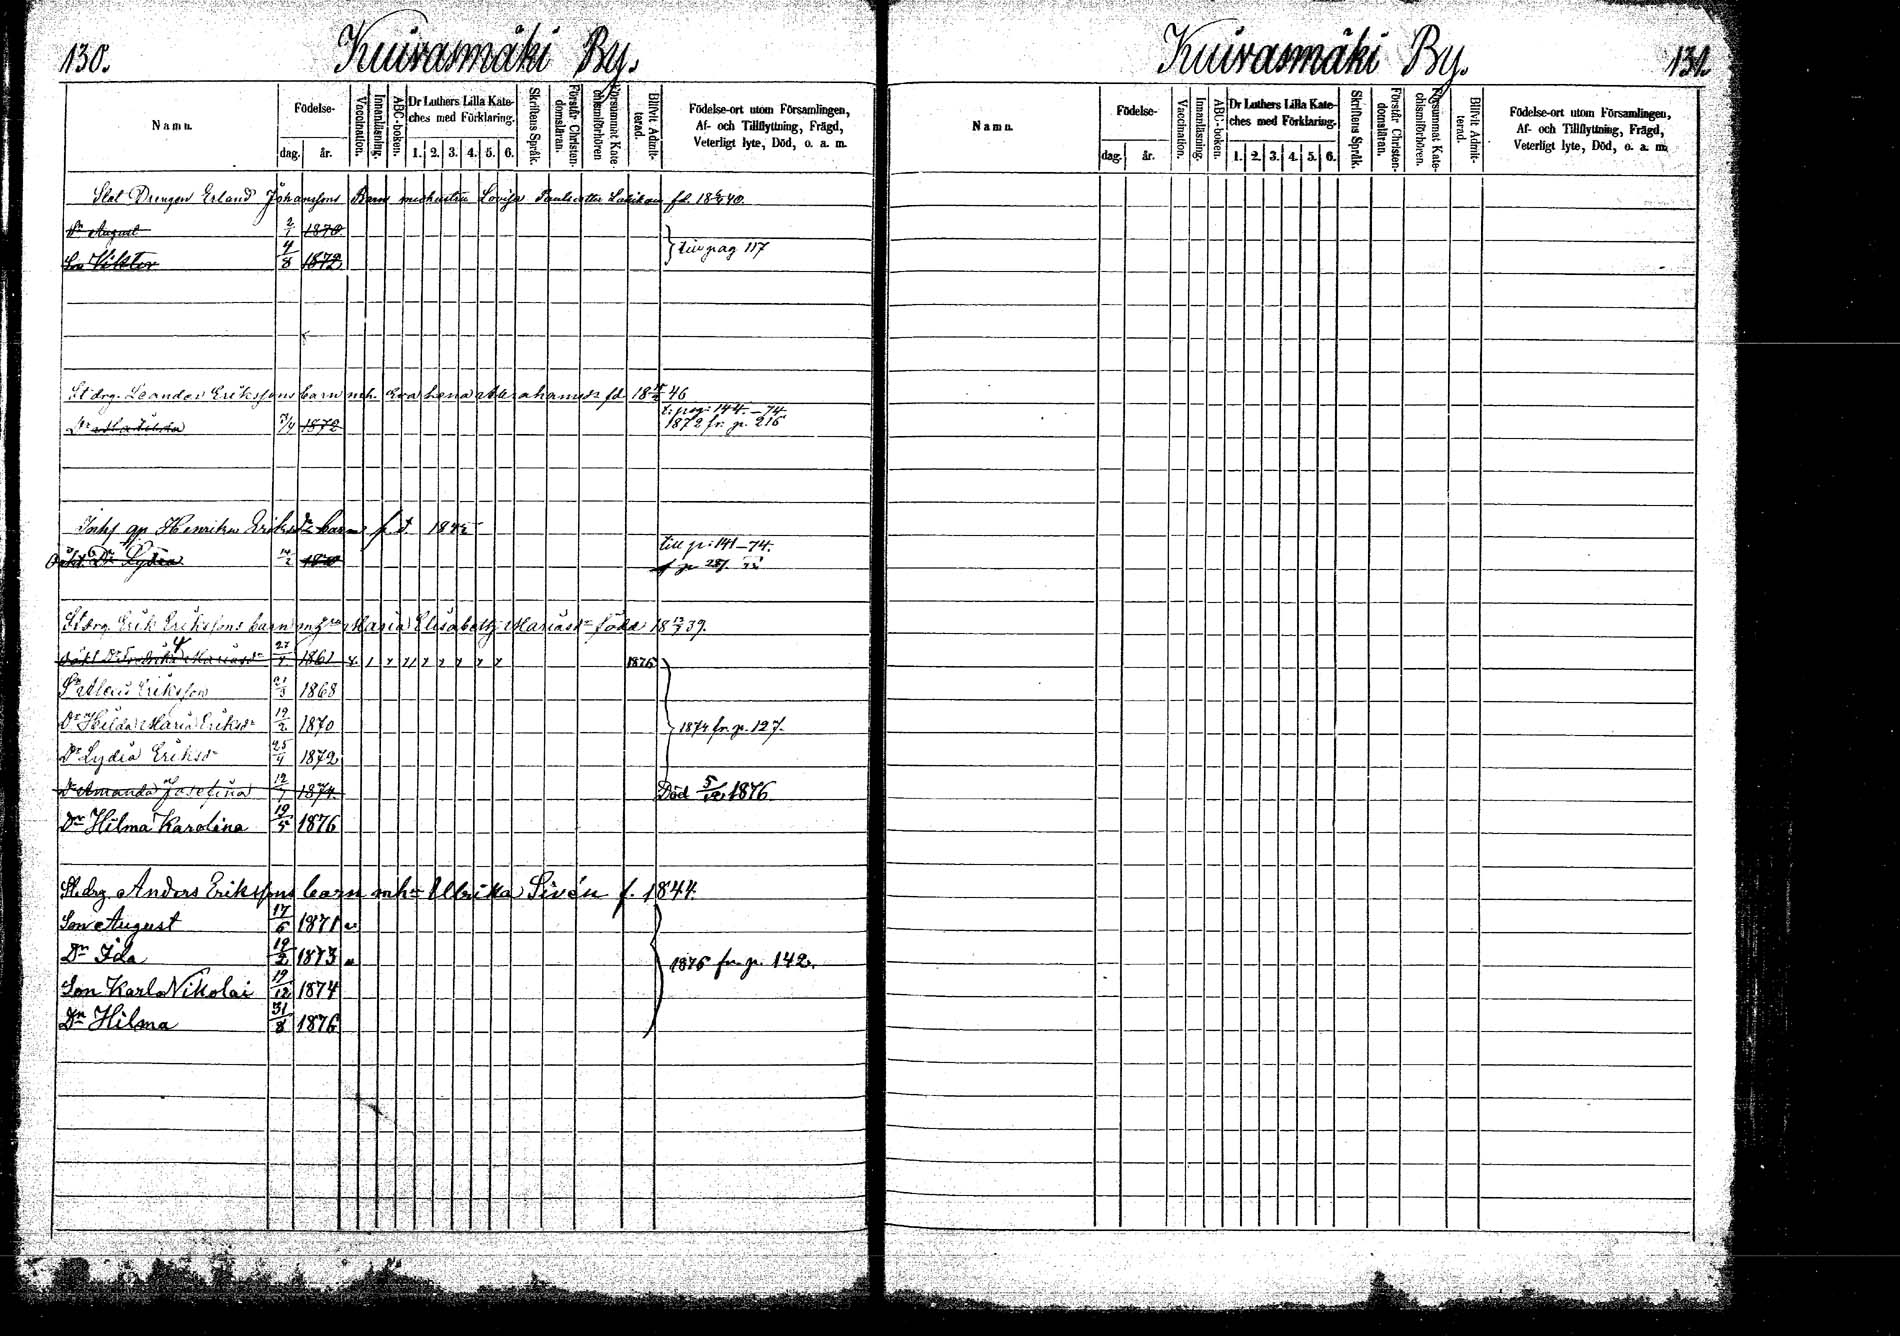 130.
Kuivasmäki By.
Namn.
Födelse-
dag.
år.
Vaccination.
Innanläsning.
ABC-boken.
Dr Luthers Lilla Kate-
ches med Förklaring.
1. 2. 3. 4. 5. 6.
Skriftens Språk.
Förstår Christen-
domsläran.
Försummat Kate-
chismiförhören
Blifvit Admit-
terad.
Födelse-ort utom Församlingen,
Af- och Tillflyttning, Frägd,
Veterligt lyte, Död, o. a. m.
Drengen Erland Johanssons Barn med hustru Lovisa
Dr August 2/1 1870
Son Viktor 4/8 1872
till pag 117
St.drg. Leander Erikssons barn mh. Eva Lena fd. 18 46
Dr 7/4 1872
t. pag: 144.-74.
1872 fr. p. 216
Henrika Eriksdr barn fd.
Oäkt. Dr Lydia
till p: 141-74.
St.drg. Erik Erikssons barn Maria Elisabeth Mariasdr född 18 39.
Oäkt Dr Fredrika Mariasdr 1861 1876
Sn Erikson 21/3 1868
Dr Hilda Maria Eriksdr 19/2 1870
1874 fr. p. 127.
Dr Lydia Eriksdr 25/4 1872
Dr Amanda Josefina 12/7 1874 Död 5/12 1876.
Dr Hilma Karolina 19/5 1876
St.drg Anders Erikssons barn mhu Ulrika Sivén f. 1844.
Son August 17/6 1871
Dr Ida 19/2 1873
1876 fr. p. 142.
Son Karl Nikolai 19/12 1874
Dr Hilma 31/8 1876
Kuivasmäki By.
131.
Namn.
Födelse-
dag.
år.
Vaccination.
Innanläsning.
ABC-boken.
Dr Luthers Lilla Kate-
ches med Förklaring.
1. 2. 3. 4. 5. 6.
Skriftens Språk.
Förstår Christen-
domsläran.
Försummat Kate-
chismiförhören.
Blifvit Admit-
terad.
Födelse-ort utom Församlingen,
Af- och Tillflyttning, Frägd,
Veterligt lyte, Död, o. a. m.